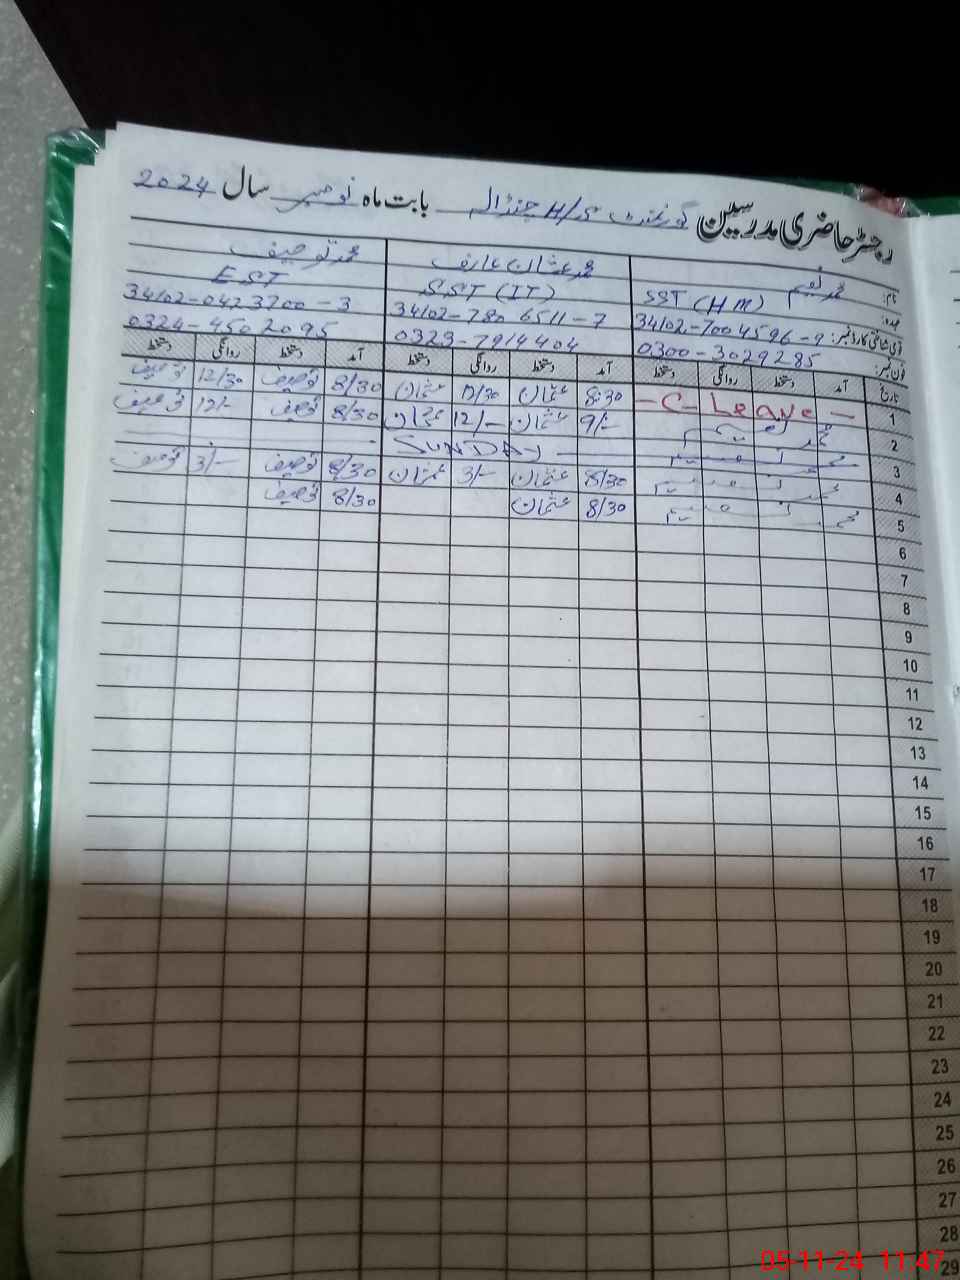 رجسٹر حاضری مدرسین گورنمنٹ H/S چنڈالہ بابت ماہ نومبر سال 2024
نام: محمد نعیم محمد عثمان عارف محمد توصیف
عہدہ: SST (HM) SST (IT) EST
قومی شناختی کارڈ نمبر: 34102-7004596-9 34102-780 6511-7 34102-0423700-3
فون نمبر: 0300-3029285 0323-7914404 0324-4502095
تاریخ آمد دستخط روانگی دستخط آمد دستخط روانگی دستخط آمد دستخط روانگی دستخط
1 - C - Leave - 8:30 عثمان 12/30 عثمان 8/30 توصیف 12/30 توصیف
2 محمد نعیم 9/- عثمان 12/- عثمان 8/30 توصیف 12/- توصیف
3 SUNDAY
4 محمد نعیم 8/30 عثمان 3/- عثمان 8/30 توصیف 3/- توصیف
5 محمد نعیم 8/30 عثمان 8/30 توصیف
6
7
8
9
10
11
12
13
14
15
16
17
18
19
20
21
22
23
24
25
26
27
28
29
05-11-24 11:47